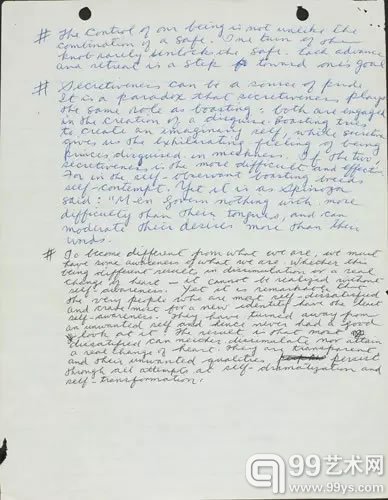 # The control of our being is not unlike the
combination of a safe. One turn of the
knob rarely unlocks the safe. Each advance
and retreat is a step toward one's goal
# Secretiveness can be a source of pride.
It is a paradox that secretiveness plays
the same role as boasting: both are engaged
in the creation of a disguise. Boasting tries
to create an imaginary self, while secretiveness
gives us the exhilarating feeling of being
princes disguised in meekness. Of the two,
secretiveness is the more difficult and effective.
For in the self-observant boasting breeds
self-contempt. Yet it is as Spinoza
said: "Men govern nothing with more
difficulty than their tongues, and can
moderate their desires more than their
words.
# To become different from what we are, we must
have some awareness of what we are. Whether this
being different results in dissimulation or a real
change of heart - it cannot be realized without
self-awareness. Yet it is remarkable that
the very people who are most self-dissatisfied
and crave most for a new identity have the least
self-awareness. They have turned away from
an unwanted self and hence never had a good
look at it. The result is that most
dissatisfied can neither dissimulate nor attain
a real change of heart. They are transparent
and their unwanted qualities persist
through all attempts at self-dramatization and
self-transformation.
99艺术网
www.99ys.com